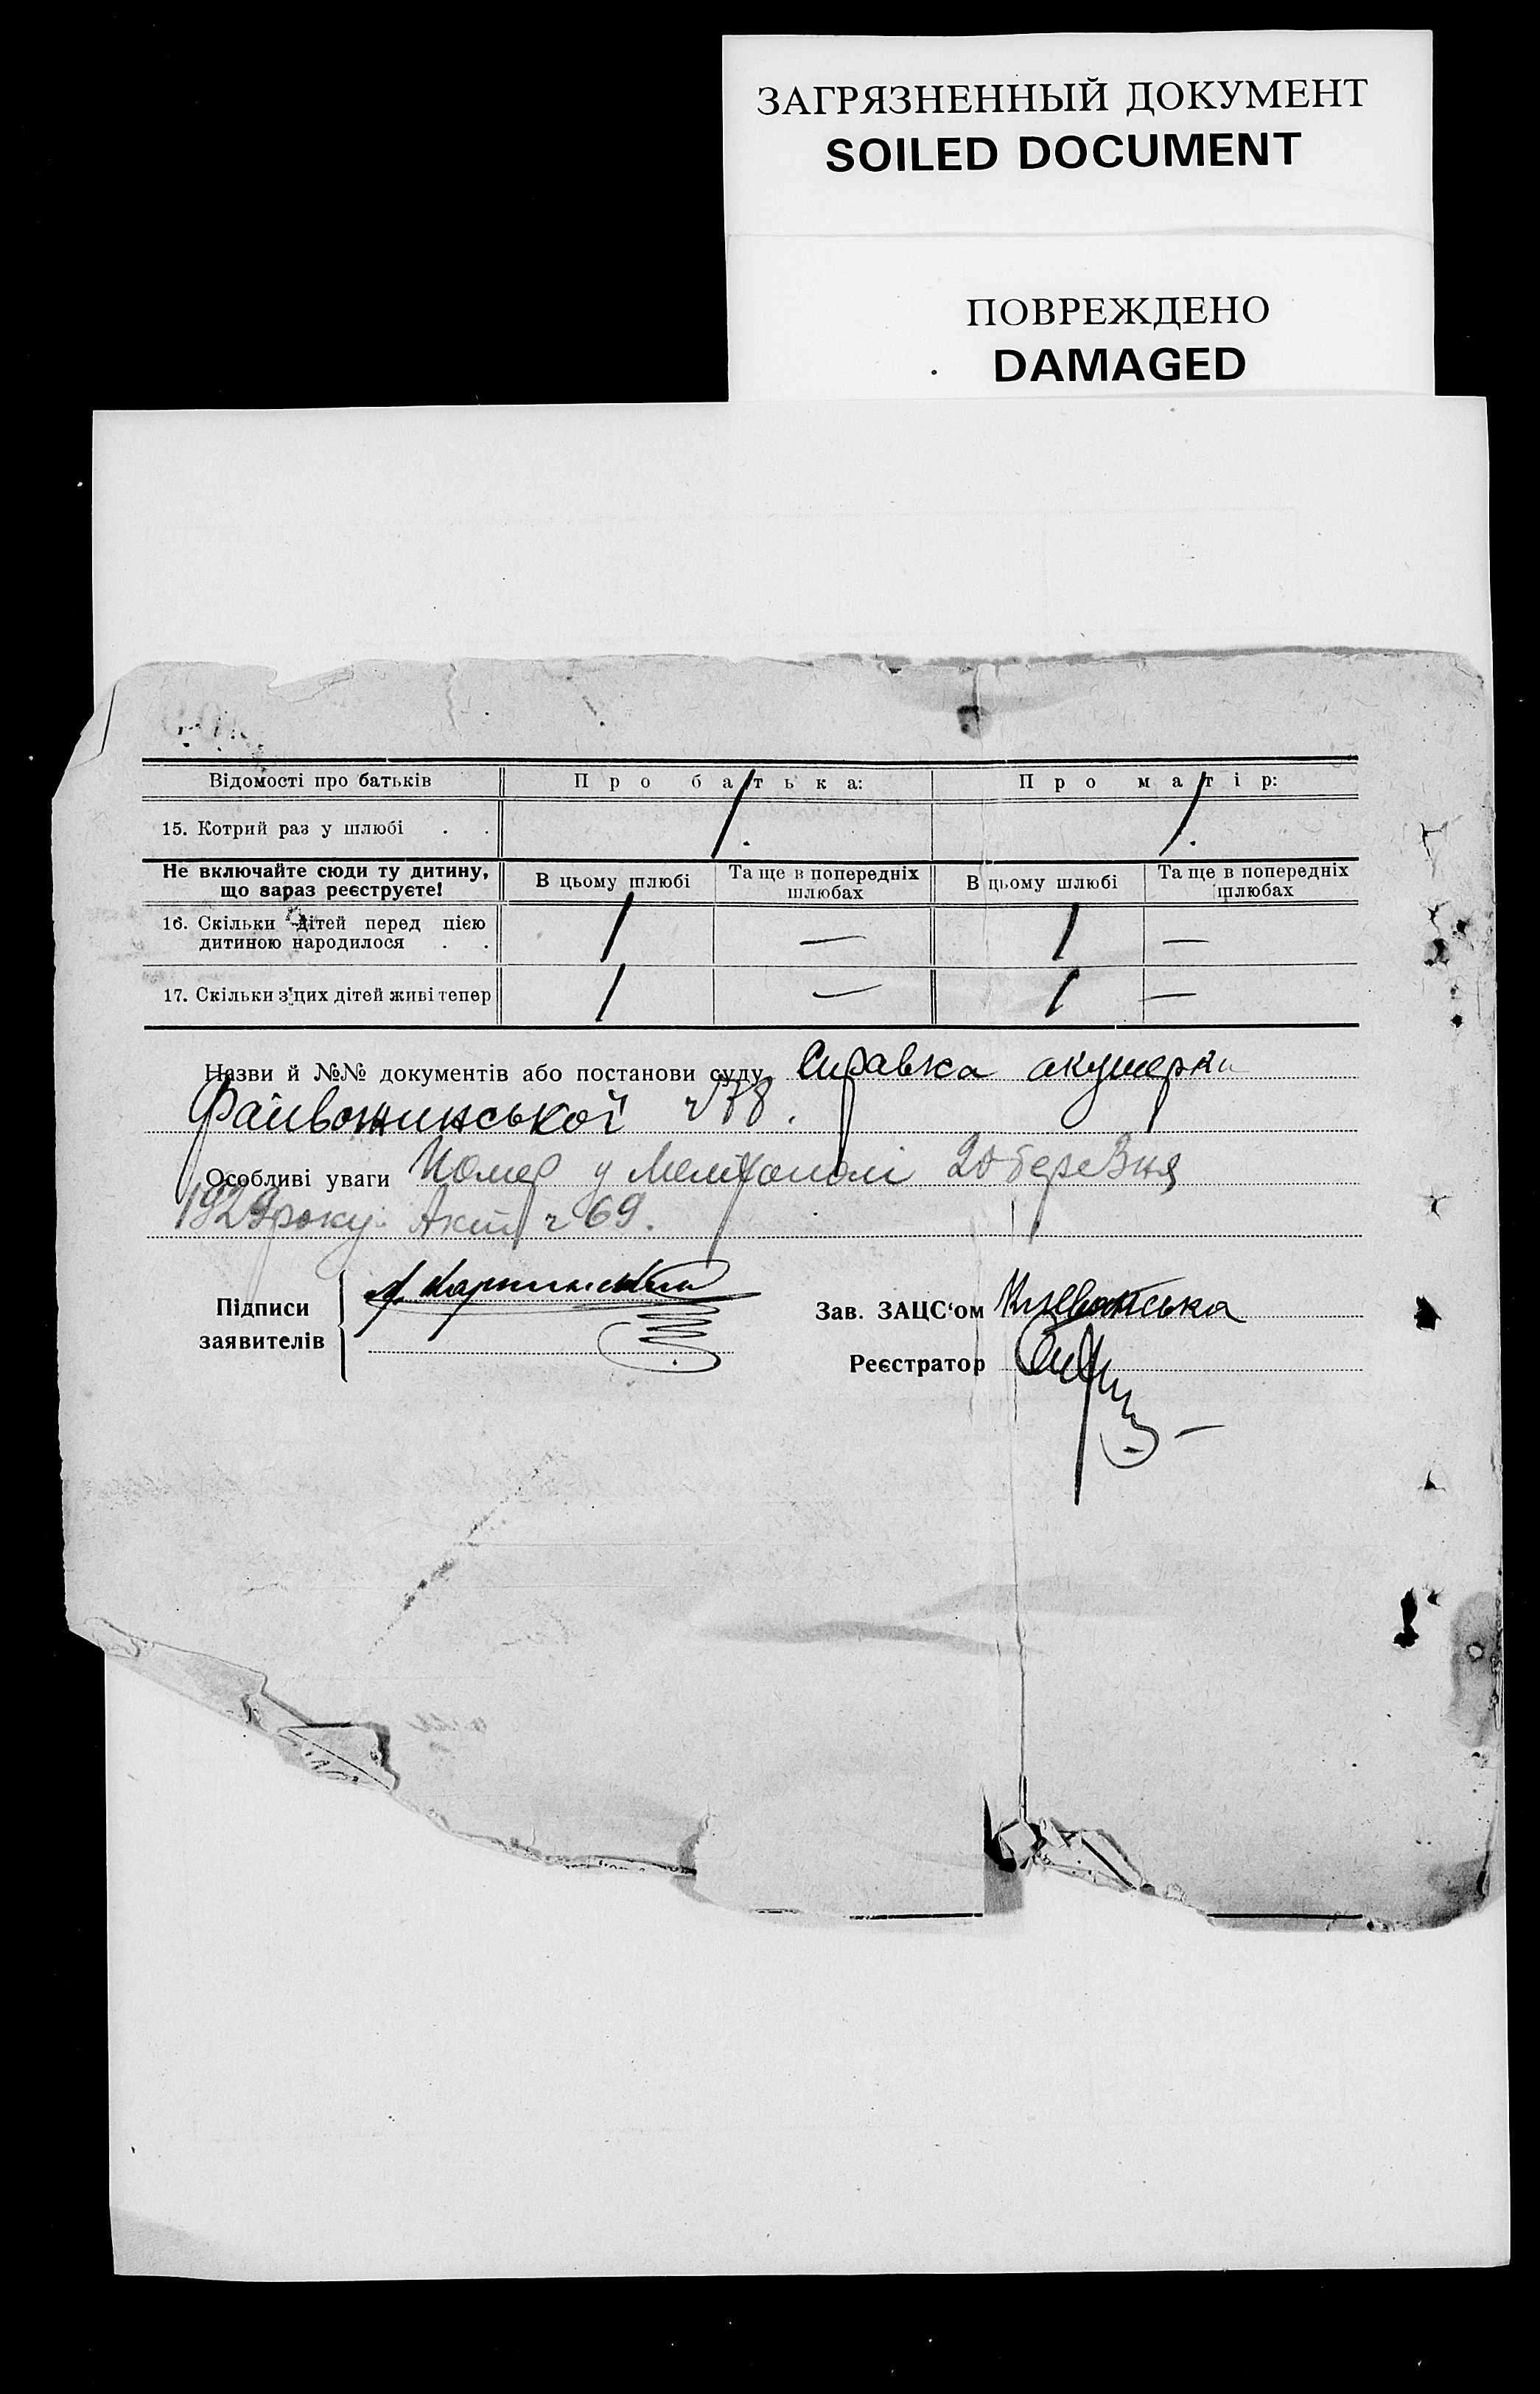 ЗАГРЯЗНЕННЫЙ ДОКУМЕНТ
SOILED DOCUMENT
ПОВРЕЖДЕНО
DAMAGED
Відомості про батьків Про батька: Про матір:
15. Котрий раз у шлюбі . . 1. 1.
Не включайте сюди ту дитину, що зараз реєструєте! В цьому шлюбі Та ще в попередніх шлюбах В цьому шлюбі Та ще в попередніх шлюбах
16. Скільки дітей перед цією
дитиною народилося . . 1 — 1 —
17. Скільки з цих дітей живі тепер 1 — 1 —
Назви й №№ документів або постанови суду Справка акушерки
ч 78.
Особливі уваги Помер у Мелітополі 20 березня
1929 року. Акт ч 69.
Підписи
заявителів
Зав. ЗАЦС'ом
Реєстратор